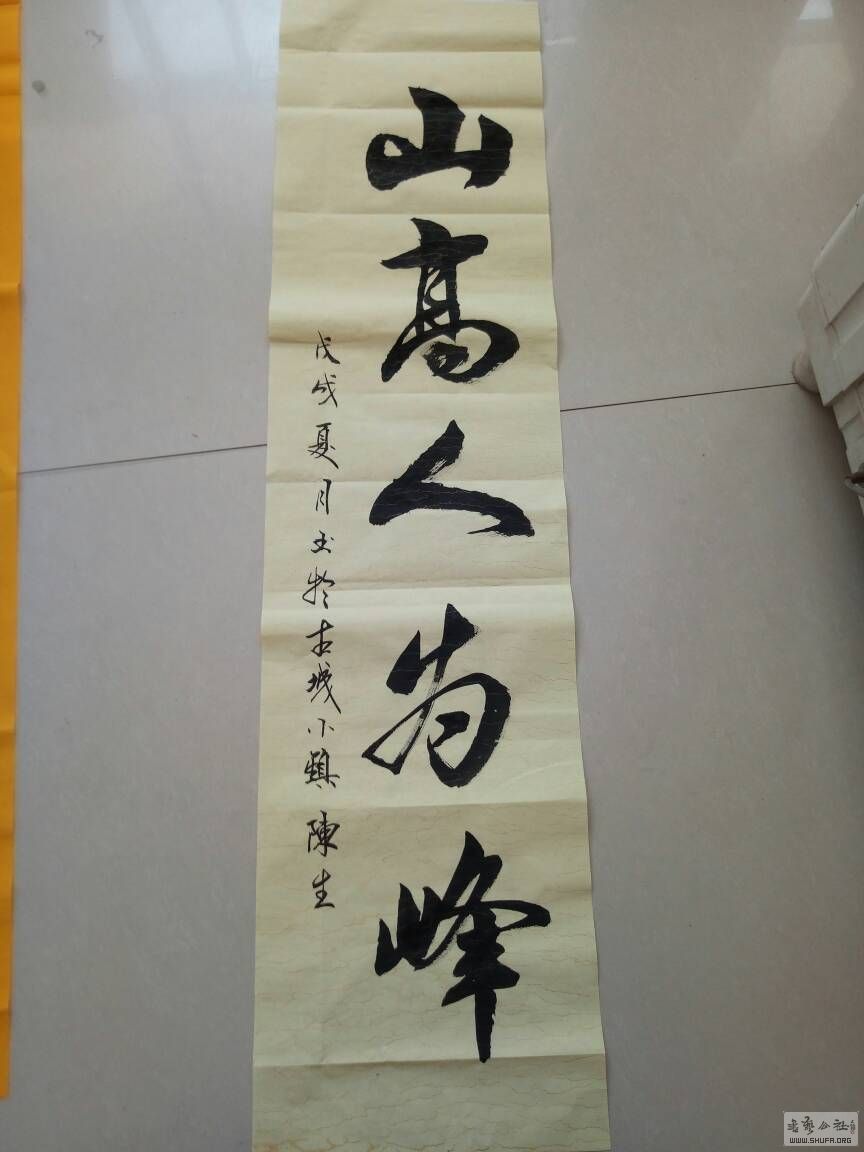 山高人为峰
戊戌夏月书於古城小鎮 陳生
书艺公社
WWW.SHUFA.ORG